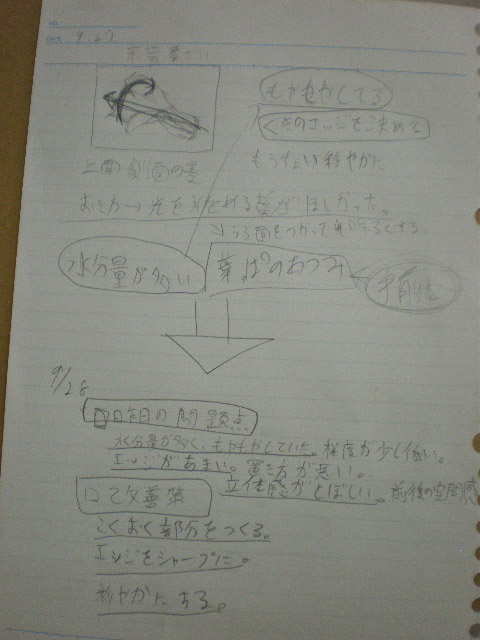 9.27
もやもやしてる
くきのエッジを決めて
もうちょい彩やかに
上面 側面の差
光をうけとめる葉がほしかった。
水分量が多い
葉っぱのあつみ
9/28
昨日の問題点
水分量が多く、もやもやしていた。 彩度が少し低い。
エッジがあまい。置き方が悪い。
立体感がとぼしい。前後の空間感
改善策
こくおく部分をつくる。
エッジをシャープに。
彩やかにする。